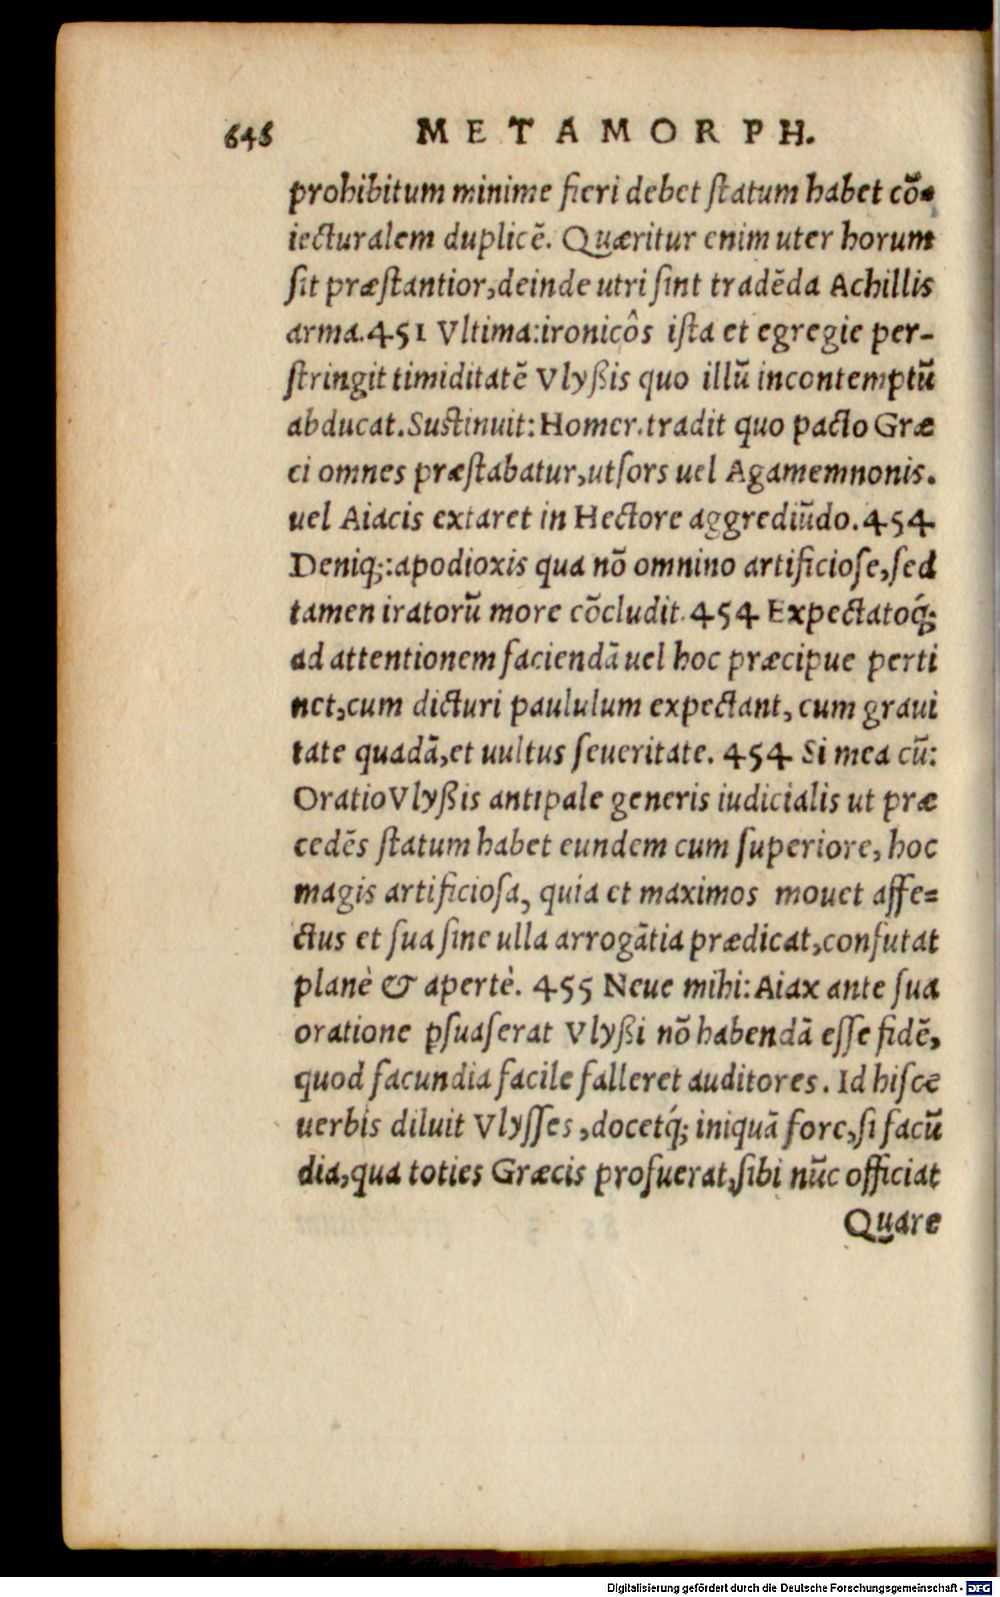 646 METAMORPH.
prohibitum minime fieri debet ſtatum habet cõ-
iecturalem duplicẽ. Quæritur enim uter horum
ſit præſtantior, deinde utri ſint tradẽda Achillis
arma. 451 Vltima: ironicôs iſta et egregie per-
ſtringit timiditatẽ Vlyßis quo illũ in contemptũ
abducat. Suſtinuit: Homer. tradit quo pacto Græ
ci omnes præſtabatur, ut ſors uel Agamemnonis.
uel Aiacis extaret in Hectore aggrediũdo. 454
Deniq;: apodioxis qua nõ omnino artificioſe, ſed
tamen iratorũ more cõcludit. 454 Expectatoq́;
ad attentionem faciendã uel hoc præcipue perti
net, cum dicturi paululum expectant, cum graui
tate quadã, et uultus ſeueritate. 454 Si mea cũ:
Oratio Vlyßis antipale generis iudicialis ut præ
cedẽs ſtatum habet eundem cum ſuperiore, hoc
magis artificioſa, quia et maximos mouet affe=
ctus et ſua ſine ulla arrogãtia prædicat, confutat
planè & apertè. 455 Neue mihi: Aiax ante ſua
oratione ꝑſuaſerat Vlyßi nõ habendã eſſe fidẽ,
quod facundia facile falleret auditores. Id hiſce
uerbis diluit Vlyſſes, docetq́; iniquã fore, ſi facũ
dia, qua toties Græcis profuerat, ſibi nũc officiat
Quare
Digitalisierung gefördert durch die Deutsche Forschungsgemeinschaft - DFG